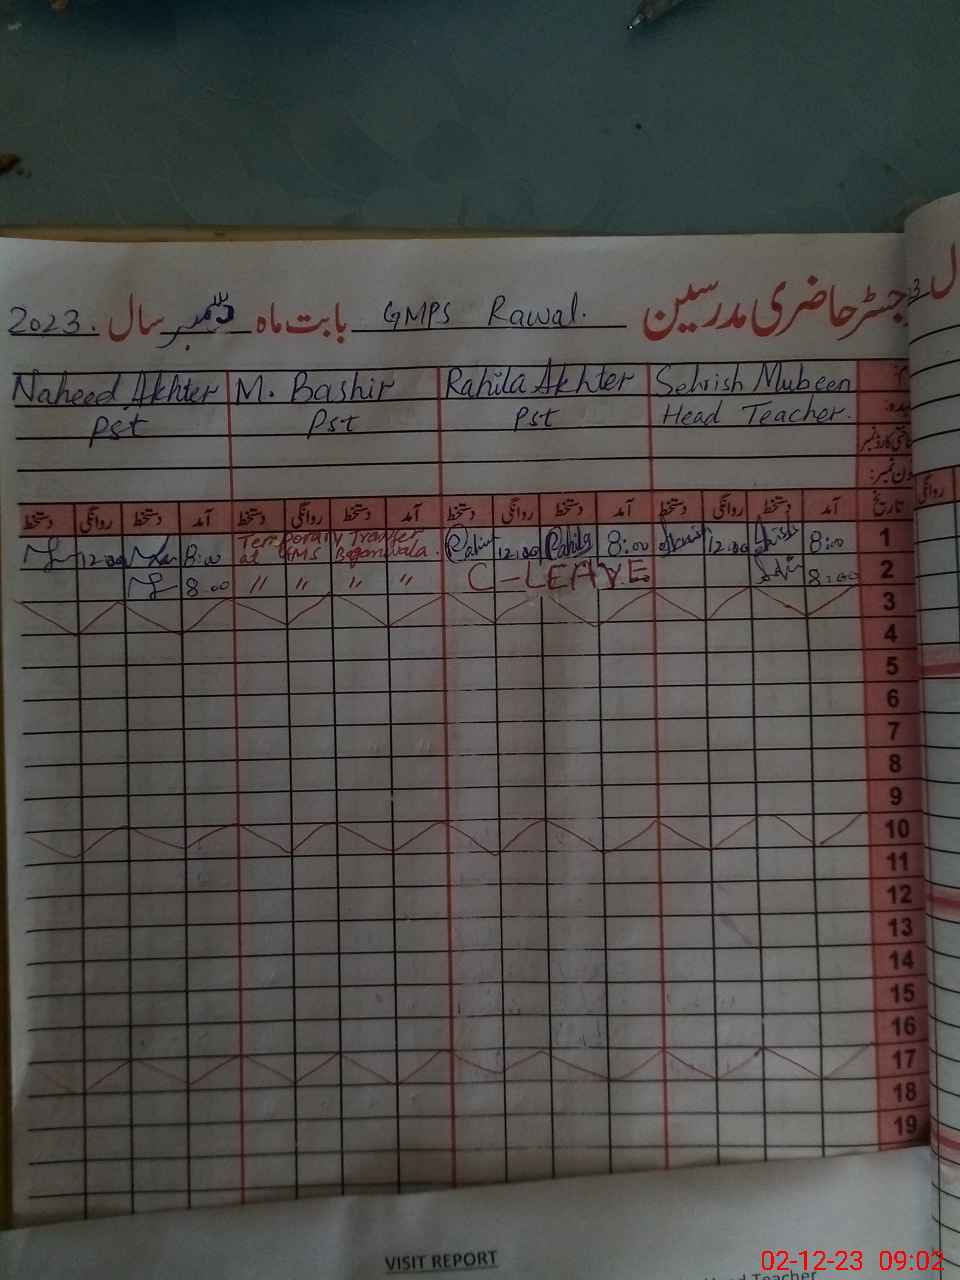 رجسٹر حاضری مدرسین GMPS Rawal. بابت ماہ دسمبر سال 2023.
Naheed Akhter M. Bashir Rahila Akhter Sehrish Mubeen
Pst Pst Pst Head Teacher.
تاریخ آمد دستخط روانگی دستخط آمد دستخط روانگی دستخط آمد دستخط روانگی دستخط آمد دستخط روانگی دستخط
12:00 8:00 Temporary Transfer 12:00 Rahila 8:00 12:00 8:00 1
at GMS
8:00 " " " " C-LEAVE 8:00 2
3
4
5
6
7
8
9
10
11
12
13
14
15
16
17
18
19
روانگی
VISIT REPORT
Head Teacher
02-12-23 09:02